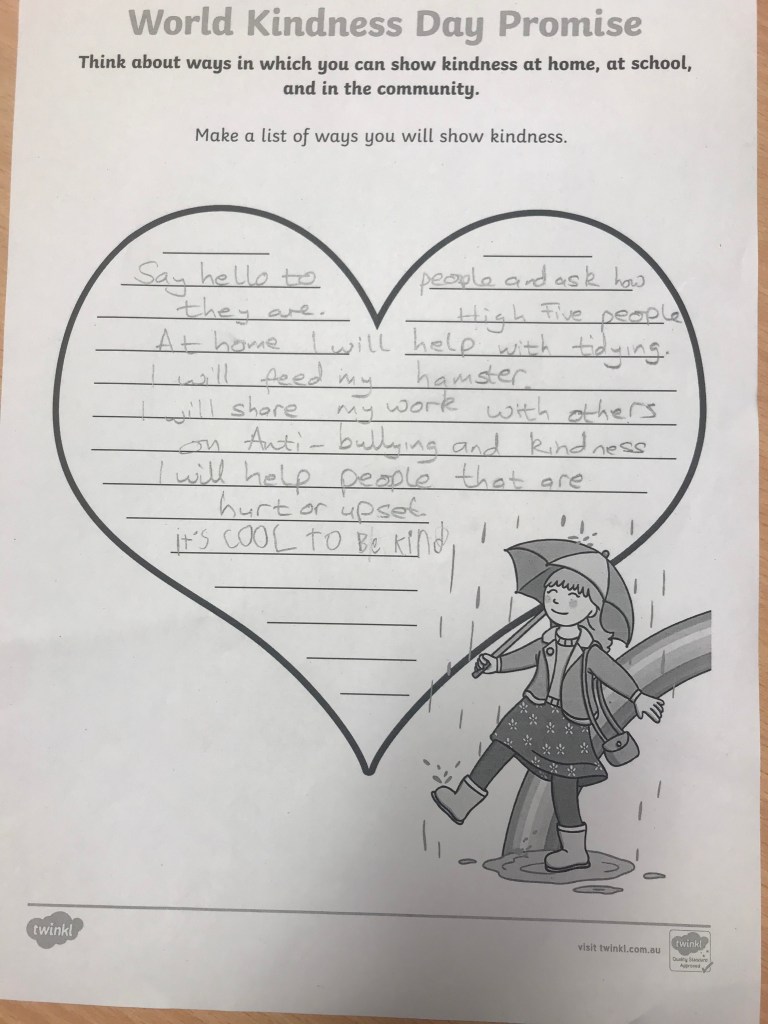 World Kindness Day Promise
Think about ways in which you can show kindness at home, at school,
and in the community.
Make a list of ways you will show kindness.
Say hello to people and ask how
they are. High Five people
At home I will help with tidying.
I will feed my hamster.
I will share my work with others
on Anti-bullying and kindness
I will help people that are
hurt or upset
it's COOL TO BE KIND
twinkl
visit twinkl.com.au
twinkl
Quality Standard
Approved